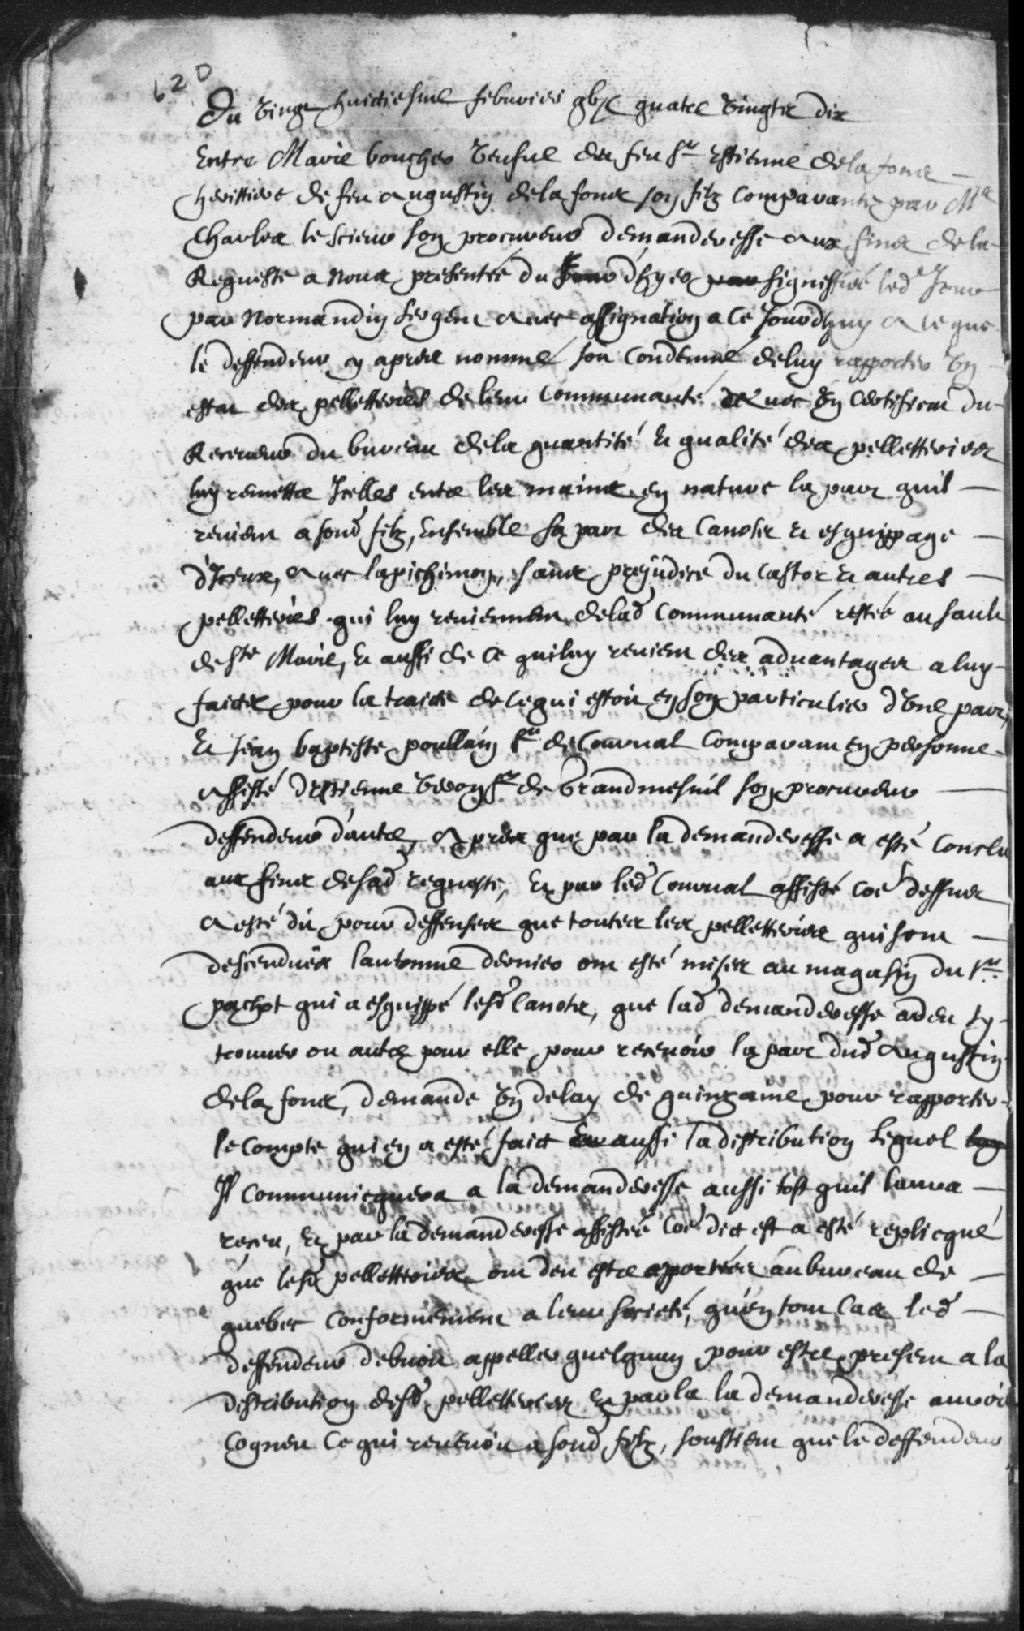 620
Du vingt huictiesme febvrier gbjc quatre vingts dix
Entre Marie boucher veufve de feu Sr Estienne de la fond
herittiere de feu Augustin de la fond son filz comparante par Me
Charles le Sieur son procureur demanderesse aux fins de la
Requeste a Nous presentée du Jour d'hyer signiffiée led Jour
par Normandin sergent avec assignation a ce Jourdhuy a ce que
le deffendeur cy apres nommé soit condemné de luy rapporter un
estat des pelletteries de leur communauté avec un certificat du
Receveur du bureau de la quantité et qualité des pelletteries
luy remettre Icelles entre les mains en nature la part quil
revient a sond filz, Ensemble sa part des Canots et esquippage
d'Iceux, avec lapichimon, sans prejudice du castor et autres
pelletteries qui luy reviennent delad communauté restée au sault
de Ste Marie, et aussi de ce quiluy revient des advantages a luy
faicts pour la traicte de ce qui estoit en son particulier d'une part,
Et Jean baptiste poullain Sr de Courval comparant en personne
assisté d'Estienne Sr de brandmesnil son procureur
deffendeur d'autre, Apres que par la demanderesse a esté conclu
aux fins de sad requeste, Et par led Courval assisté coe dessus
a esté dit pour deffenses que toutes les pelletteries qui sont
descenduës lautonne dernier ont esté mises au magasin du Sr
pachot qui a esquippé lesd Canots, que lad demanderesse a deu sy
trouver ou autre pour elle pour recevoir la part dud Augustin
de la fond, demande un delay de quinzaine pour rapporter
le compte qui en a esté faict aussi la distribution lequel
Il communicquera a la demanderesse aussi tost quil laura
receu, Et par la demanderesse assistée coe dict est a esté replicqué
que lesd pelletteries ont deu estre aportées au bureau de
quebec conformement a leur societé, qu'en tout Cas led
deffendeur debvoit appeller quelquun pour estre present a la
distribution desd pelletteries Et par la la demanderesse auroit
cogneu Ce qui revenoit a sond filz, soustient que le deffendeur